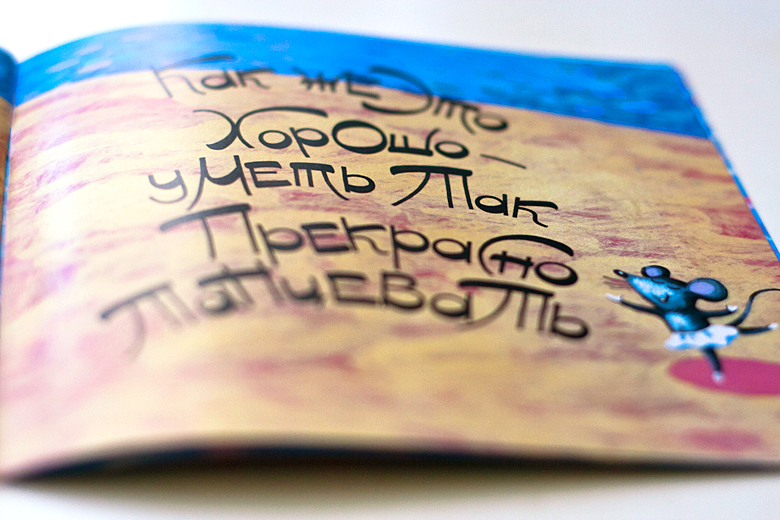 Как же это
Хорошо –
уметь так
Прекрасно
танцевать